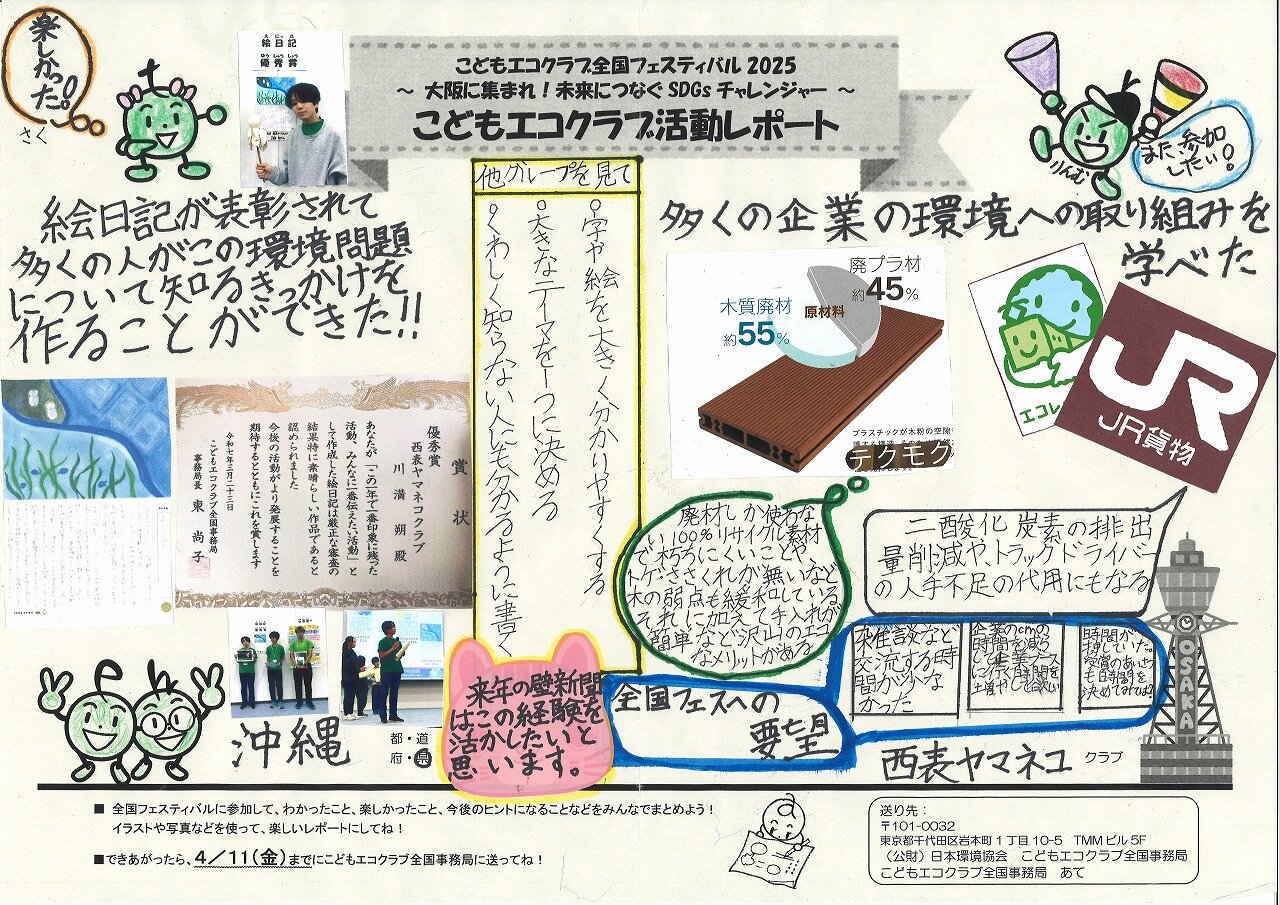 こどもエコクラブ全国フェスティバル 2025
～ 大阪に集まれ！未来につなぐ SDGs チャレンジャー ～
こどもエコクラブ活動レポート
楽しかった。
さく
絵日記
優秀賞
また、参加
したい！
りんむ
絵日記が表彰されて
多くの人がこの環境問題
について知るきっかけを
作ることができた!!
賞状
優秀賞
西表ヤマネコクラブ
川満 朔 殿
あなたが「この一年で一番印象に残った
活動、みんなに一番伝えたい活動」と
して作成した絵日記は厳正な審査の
結果特に素晴らしい作品であると
認められました
今後の活動がより発展することを
期待するとともにこれを賞します
令和七年三月二十三日
こどもエコクラブ全国事務局
事務局長 東 尚子
他グループを見て
字や絵を大きく分かりやすくする
大きなテーマを1つに決める
くわしく知らない人にも分かるように書く
来年の壁新聞
はこの経験を
活かしたいと
思います。
多くの企業の環境への取り組みを
学べた
廃プラ材
約45%
木質廃材
約55%
原材料
プラスチックが木粉の空隙
テクモク
エコレ
JR
JR貨物
廃材しか使わな
い100%リサイクル素材
で朽ちにくいことや、
トゲ・ささくれが無いなど
木の弱点も緩和している
それに加えて手入れが
簡単など沢山のエコ
なメリットがある
二酸化炭素の排出
量削減や、トラックドライバー
の人手不足の代用にもなる
全国フェスへの
要望
雑談など
交流する時
間が少な
かった
企業のcmの
時間を減ら
して企業ブース
に行く時間を
増やして欲しい
時間が
押していた。
受賞のあいさつ
も時間を
決めておけば？
OSAKA
沖縄
都・道
府・県
西表ヤマネコ クラブ
■ 全国フェスティバルに参加して、わかったこと、楽しかったこと、今後のヒントになることなどをみんなでまとめよう！
イラストや写真などを使って、楽しいレポートにしてね！
■できあがったら、4／11(金)までにこどもエコクラブ全国事務局に送ってね！
送り先：
〒101-0032
東京都千代田区岩本町 1 丁目 10-5 TMM ビル 5F
（公財）日本環境協会 こどもエコクラブ全国事務局
こどもエコクラブ全国事務局 あて